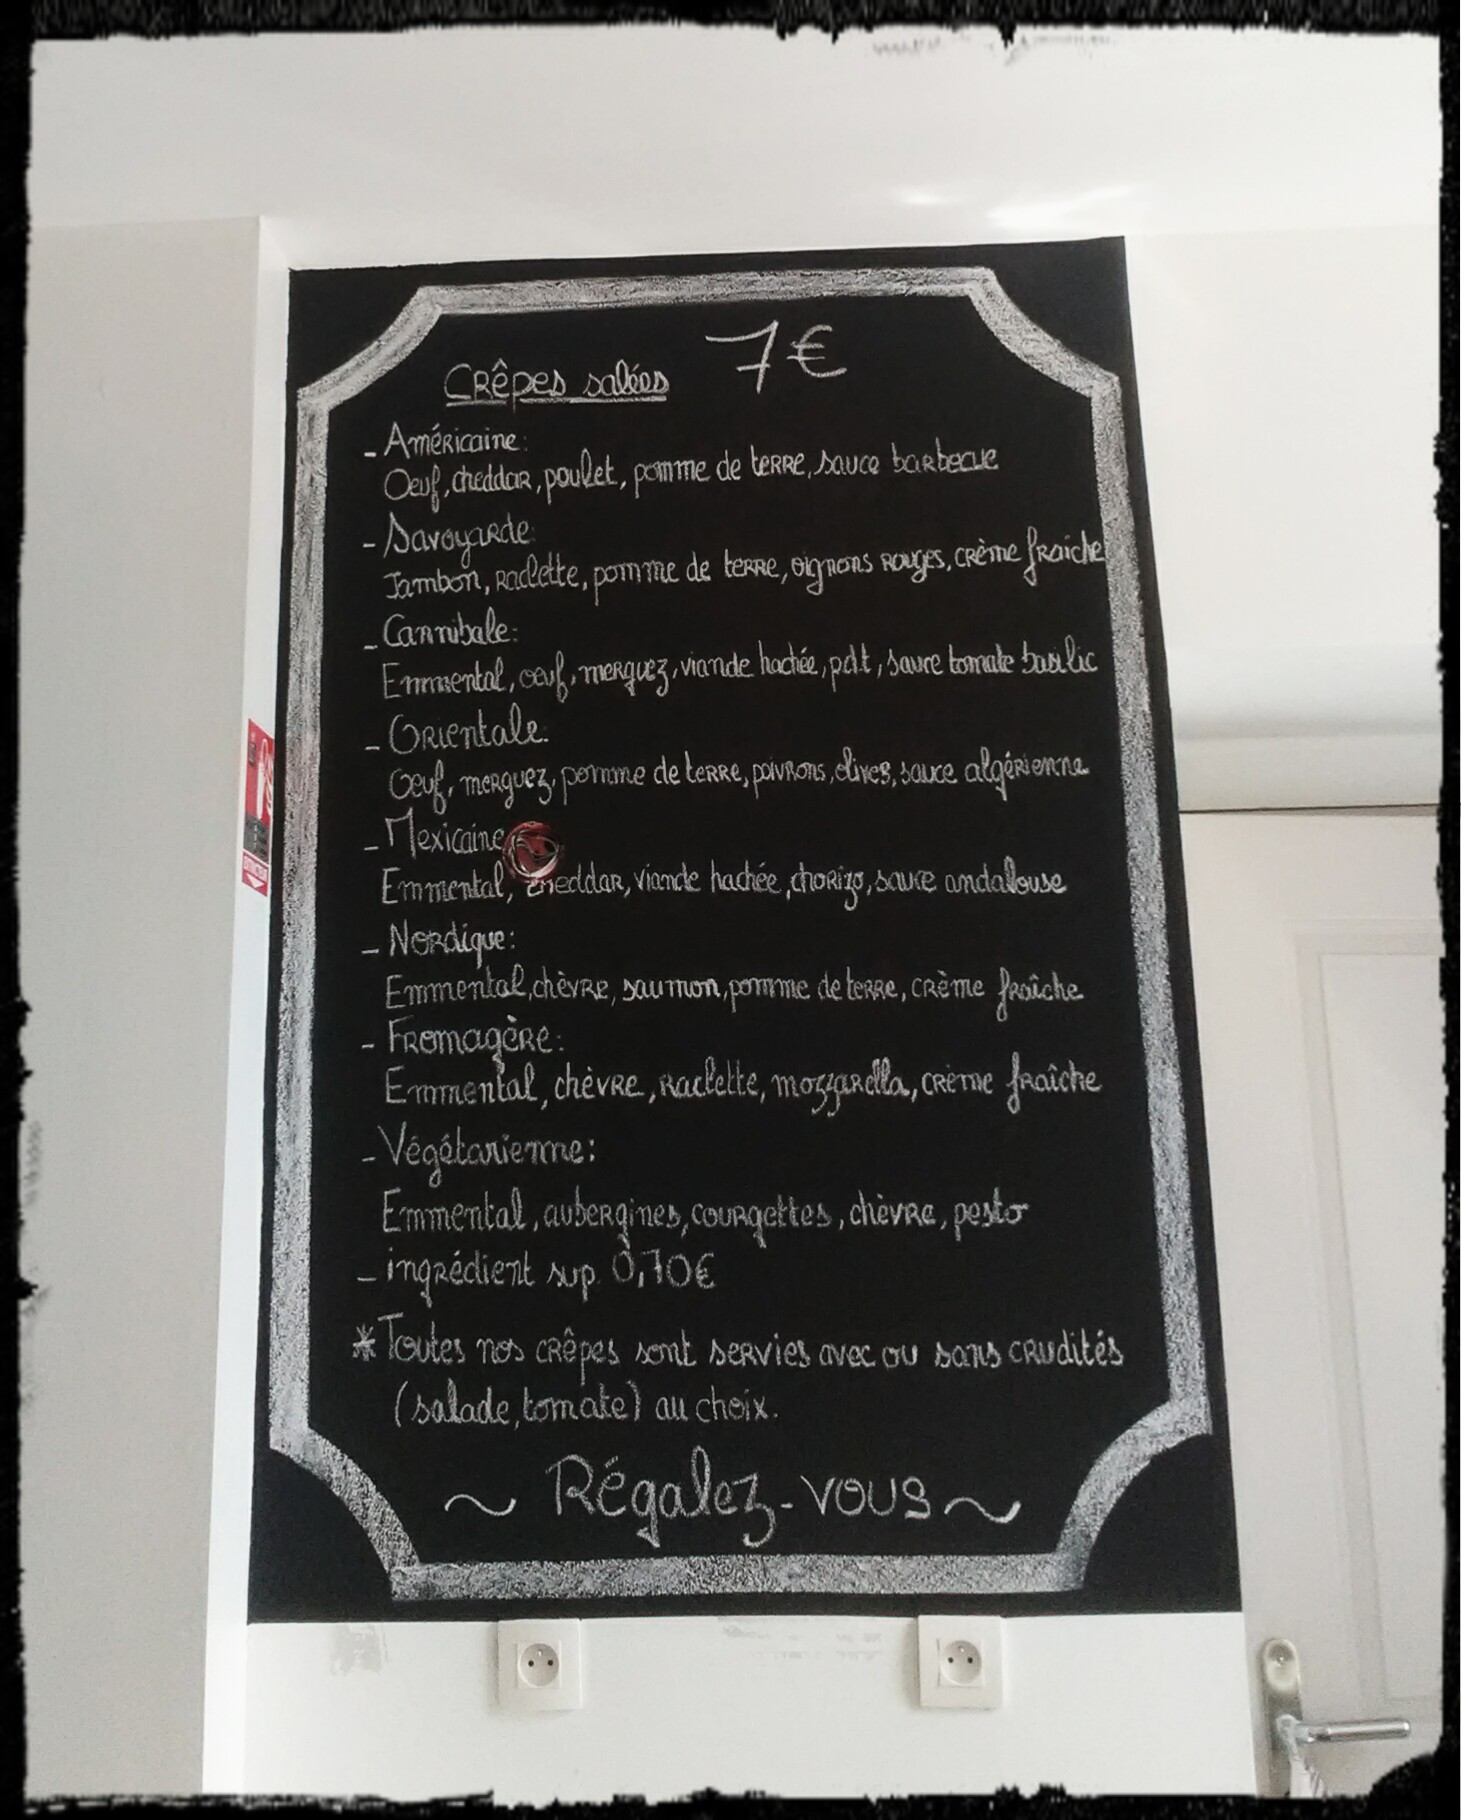 Crêpes salées 7€
- Américaine:
Oeuf, cheddar, poulet, pomme de terre, sauce barbecue
- Savoyarde:
Jambon, raclette, pomme de terre, oignons rouges, crème fraiche
- Cannibale:
Emmental, oeuf, merguez, viande hachée, pdt, sauce tomate basilic
- Orientale:
Oeuf, merguez, pomme de terre, poivrons, olives, sauce algérienne
- Mexicaine
Emmental, cheddar, viande hachée, chorizo, sauce andalouse
- Nordique:
Emmental, chèvre, saumon, pomme de terre, crème fraîche
- Fromagère:
Emmental, chèvre, raclette, mozzarella, crème fraîche
- Végétarienne:
Emmental, aubergines, courgettes, chèvre, pesto
- ingrédient sup. 0,70€
* Toutes nos crêpes sont servies avec ou sans crudités
(salade, tomate) au choix.
~ Régalez-vous ~